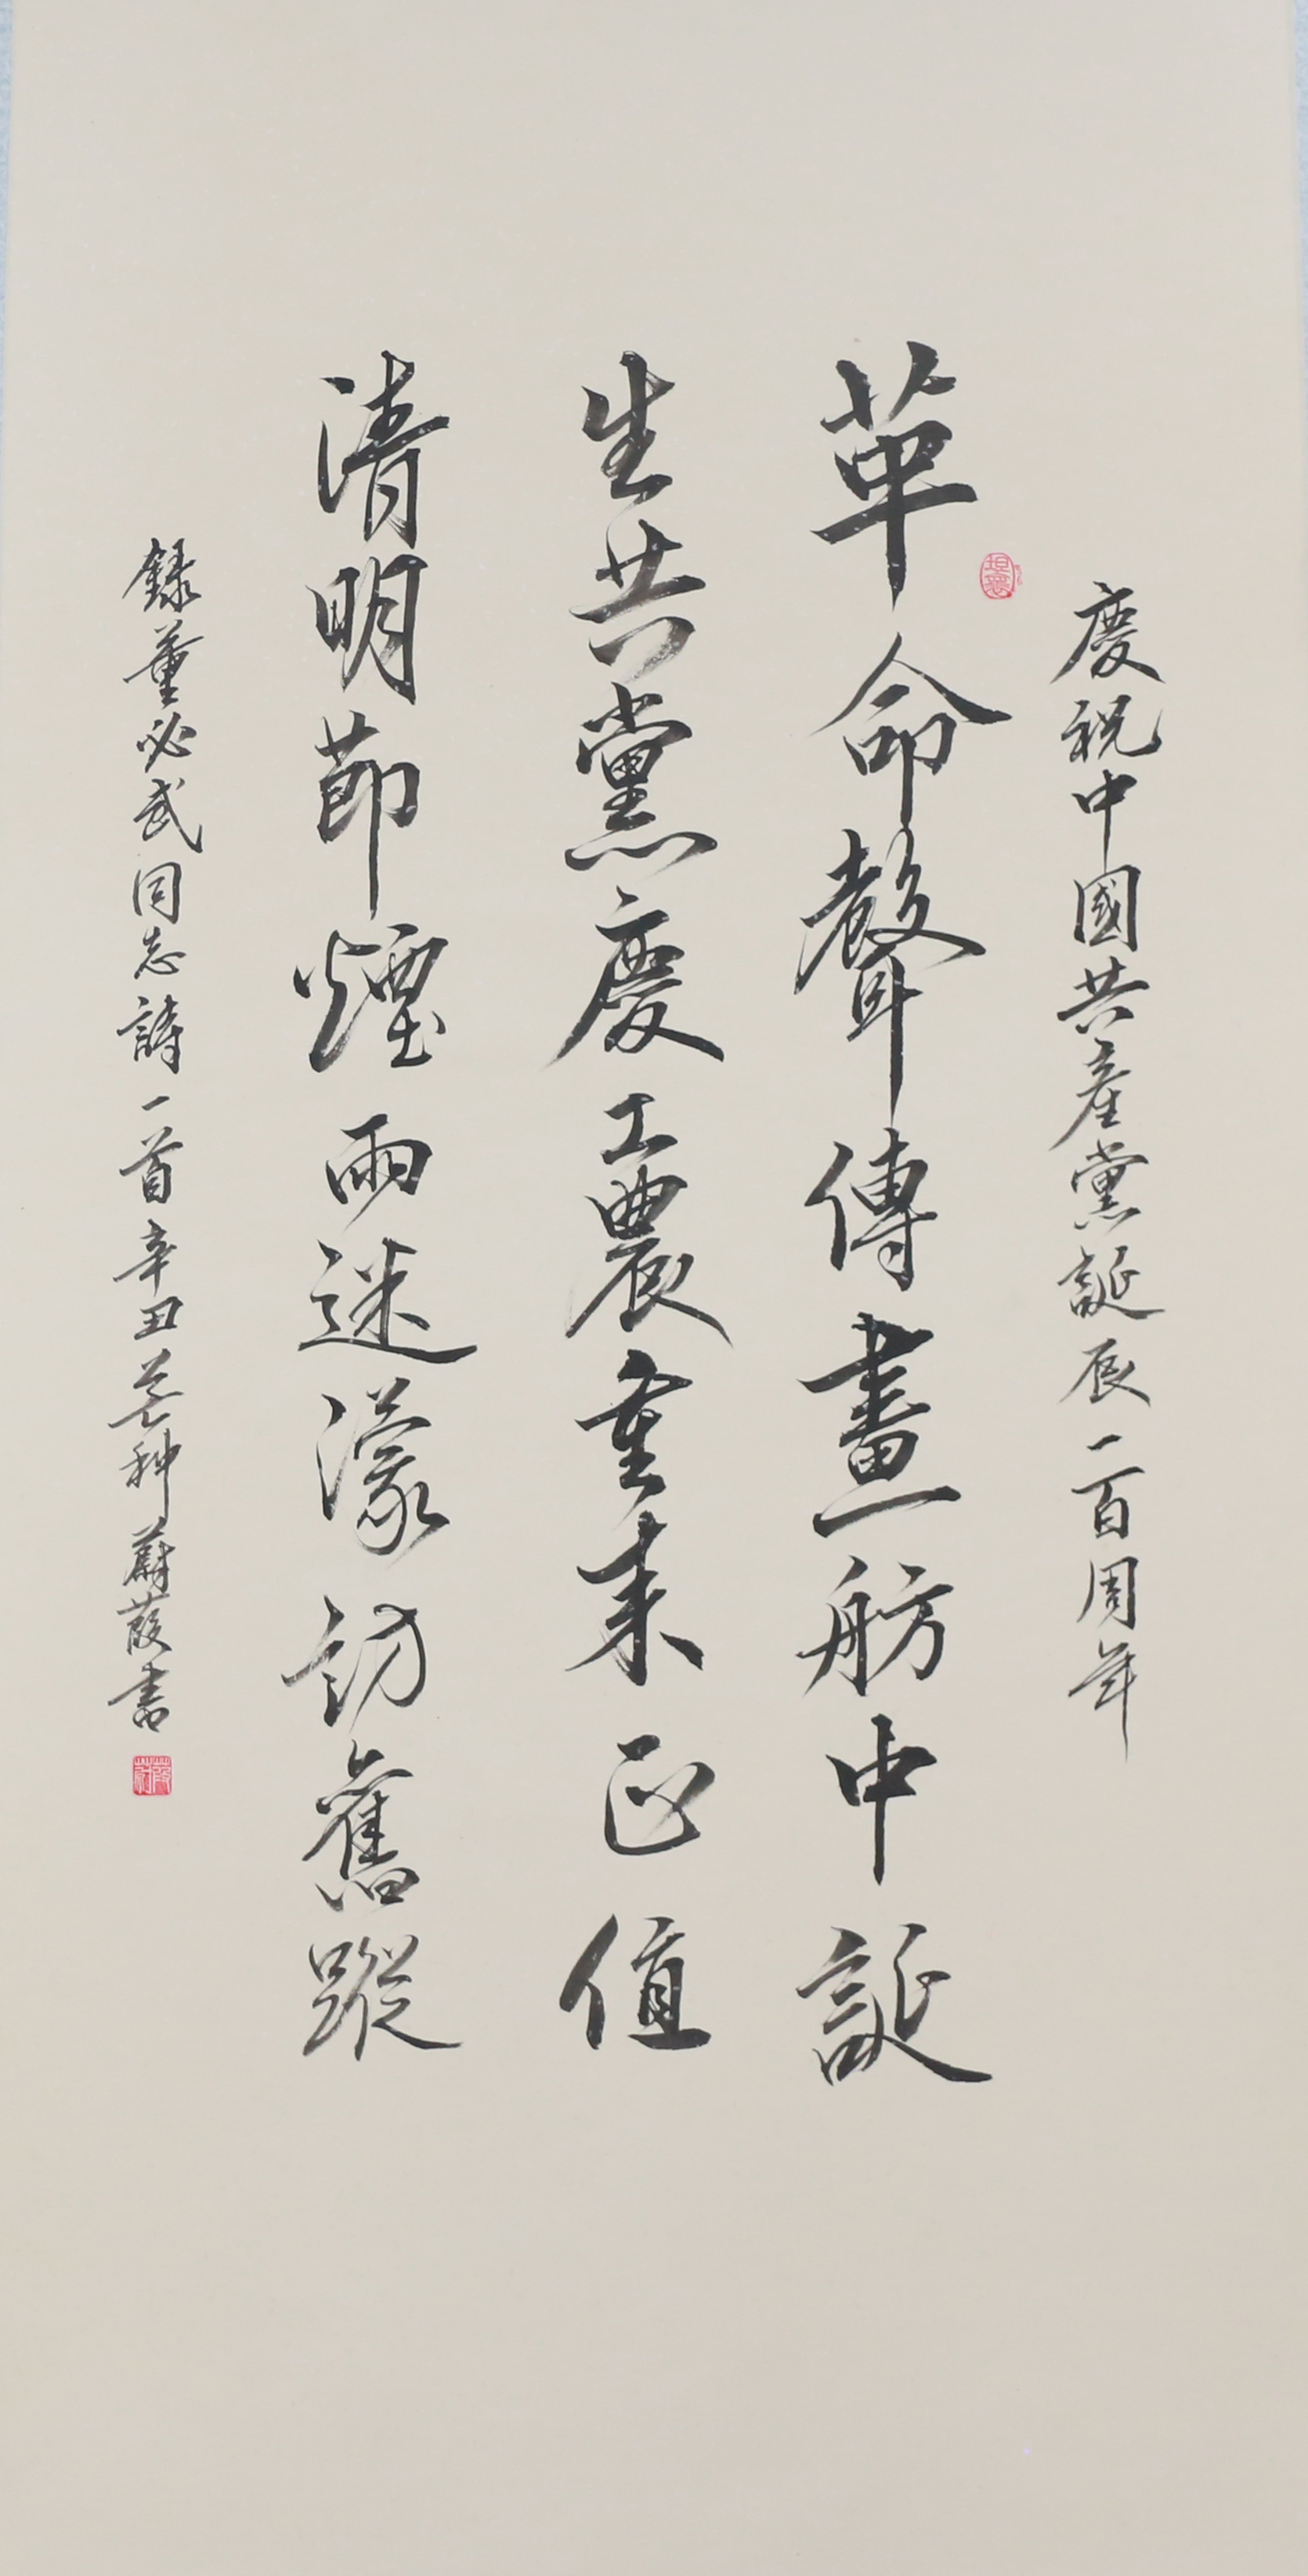 慶祝中國共產黨誕辰一百周年
革命聲傳畫舫中誕
生共黨慶工農重來正值
清明節煙雨迷濛訪舊蹤
錄董必武同志詩一首辛丑芒種蔚葭書